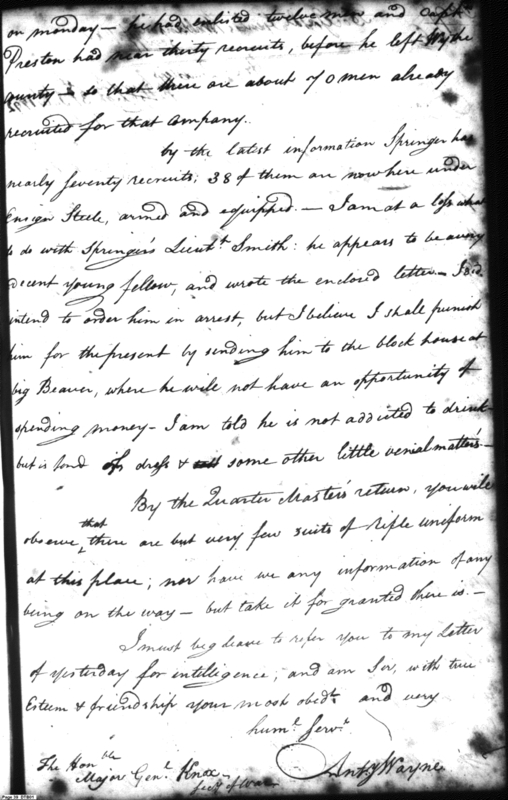 on monday – he had enlisted twelve men and Capt.
Preston had near thirty recruits, before he left Wythe
County – so that there are about 70 men already
recruited for that Company.
by the latest information Springer has
nearly seventy recruits; 38 of them are now here under
Ensign Steele, armed and equipped. – I am at a loss what
to do with Springer's Lieut.t Smith: he appears to be a very
decent young fellow, and wrote the enclosed letter – I did
intend to order him in arrest, but I believe I shall punish
him for the present by sending him to the block house at
big Beaver, where he will not have an opportunity of
spending money – I am told he is not addicted to drink
but is fond of dress & some other little venial matters –
By the Quarter Master's return, you will
that
observe, there are but very few suits of rifle uniform
at this place; nor have we any information of any
being on the way – but take it for granted there is. –
I must beg leave to refer you to my letter
of yesterday for intelligence; and am Sir, with true
Esteem & friendship your most obed.t and very
hum.e Serv.t
Ant.y Wayne
The Hon.ble
Major Gen.l Knox
Sec.y of War